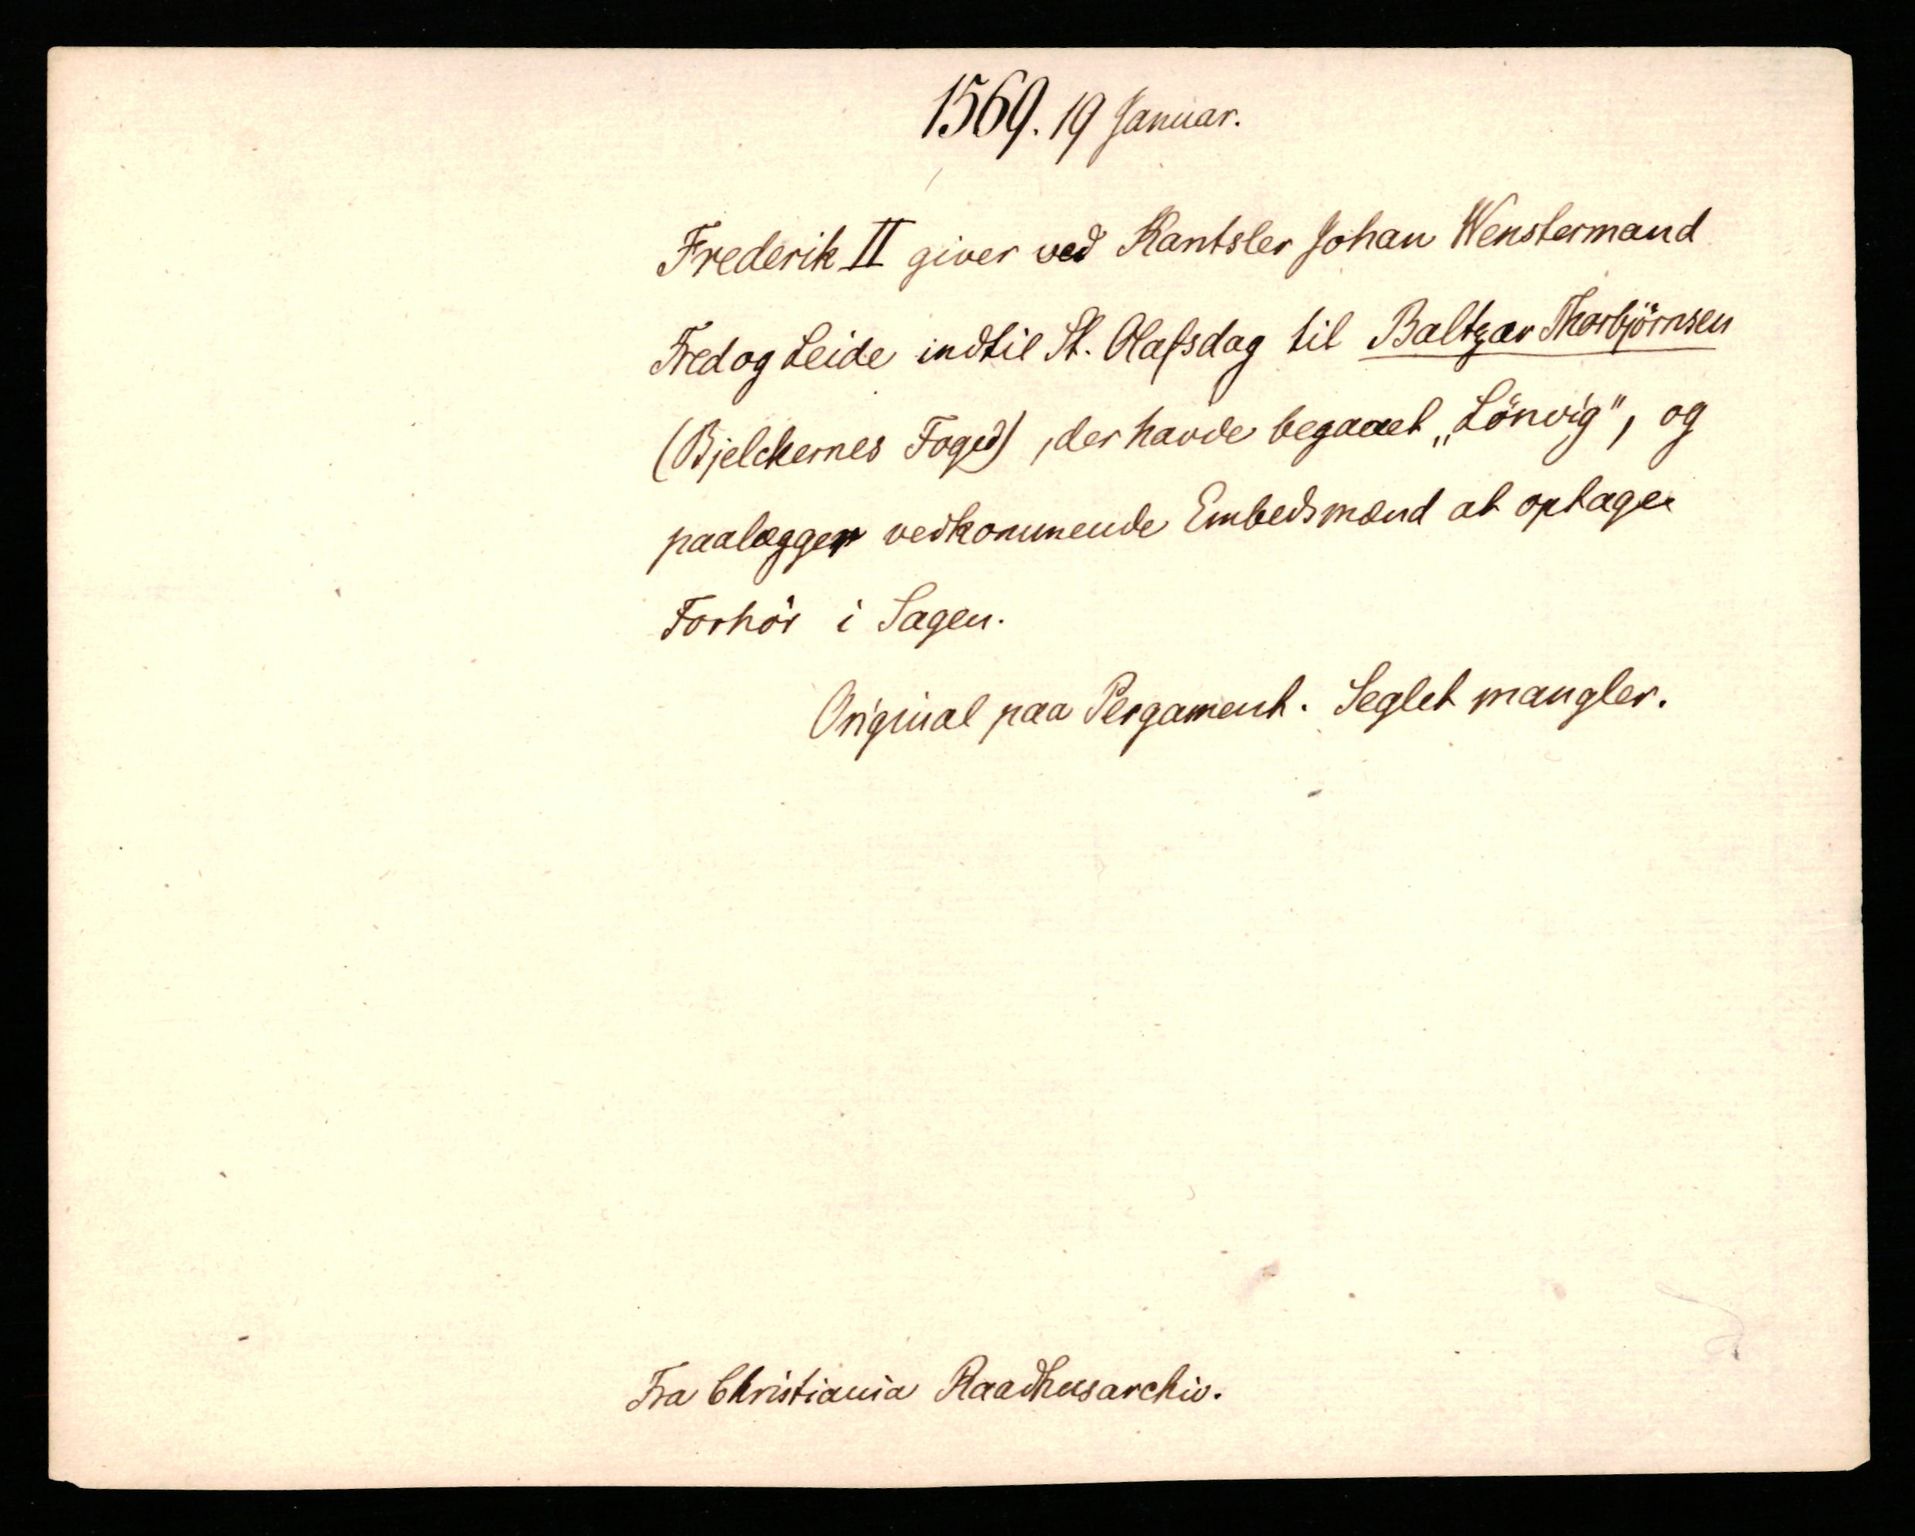 1569. 19 Januar.
Frederik II giver ved Kantsler Johan Wenstermand
Fred og Leide indtil St. Olafsdag til Baltzar Thorbjörnsen
(Bjelckernes Foged), der havde begaaet „Lönvig", og
paalægger vedkommende Embedsmænd at optage
Forhör i Sagen.
Original paa Pergament. Seglet mangler.
Fra Christiania Raadhusarchiv.